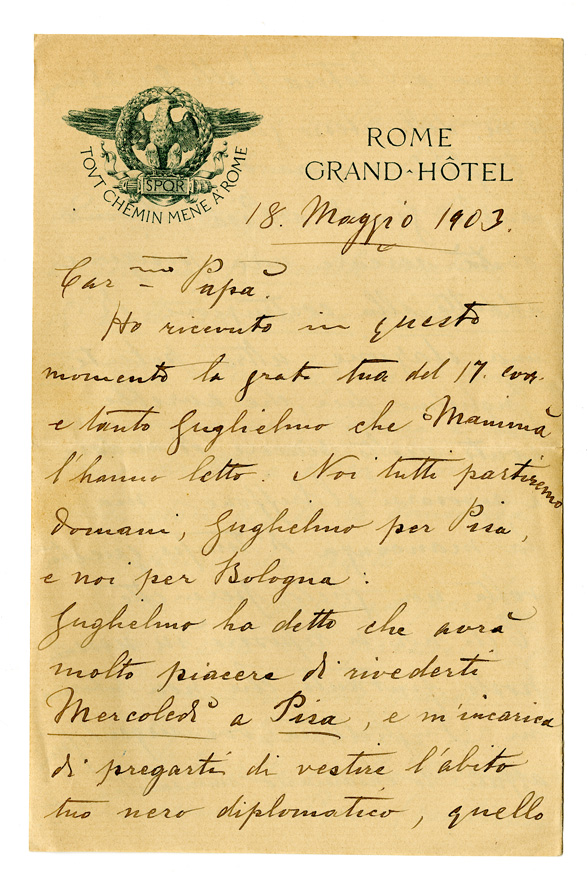 SPQR
TOVT CHEMIN MENE A ROME
ROME
GRAND-HÔTEL
18. Maggio 1903.
Car.mo Papà.
Ho ricevuto in questo
momento la grata tua del 17. corr.
e tanto Guglielmo che Mammà
l'hanno letto. Noi tutti partiremo
domani, Guglielmo per Pisa,
e noi per Bologna:
Guglielmo ha detto che avrà
molto piacere di rivederti
Mercoledì a Pisa, e m'incarica
di pregarti di vestire l'abito
tuo nero diplomatico, quello